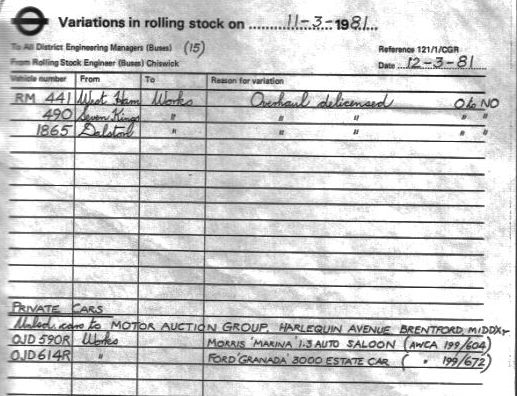 Variations in rolling stock on 11-3-1981
To All District Engineering Managers (Buses) (15) Reference 121/1/CGR
From Rolling Stock Engineer (Buses) Chiswick Date 12-3-81
Vehicle number From To Reason for variation
RM 441 West Ham Works Overhaul delicensed O to NO
490 Seven Kings " " " " "
1865 Dalston " " " " "
PRIVATE CARS
cars to MOTOR AUCTION GROUP, HARLEQUIN AVENUE BRENTFORD MIDDX
OJD 590R Works MORRIS 'MARINA' 1.3 AUTO SALOON (AWCA 199/604)
OJD 614R " FORD 'GRANADA' 3000 ESTATE CAR ( " 199/672)